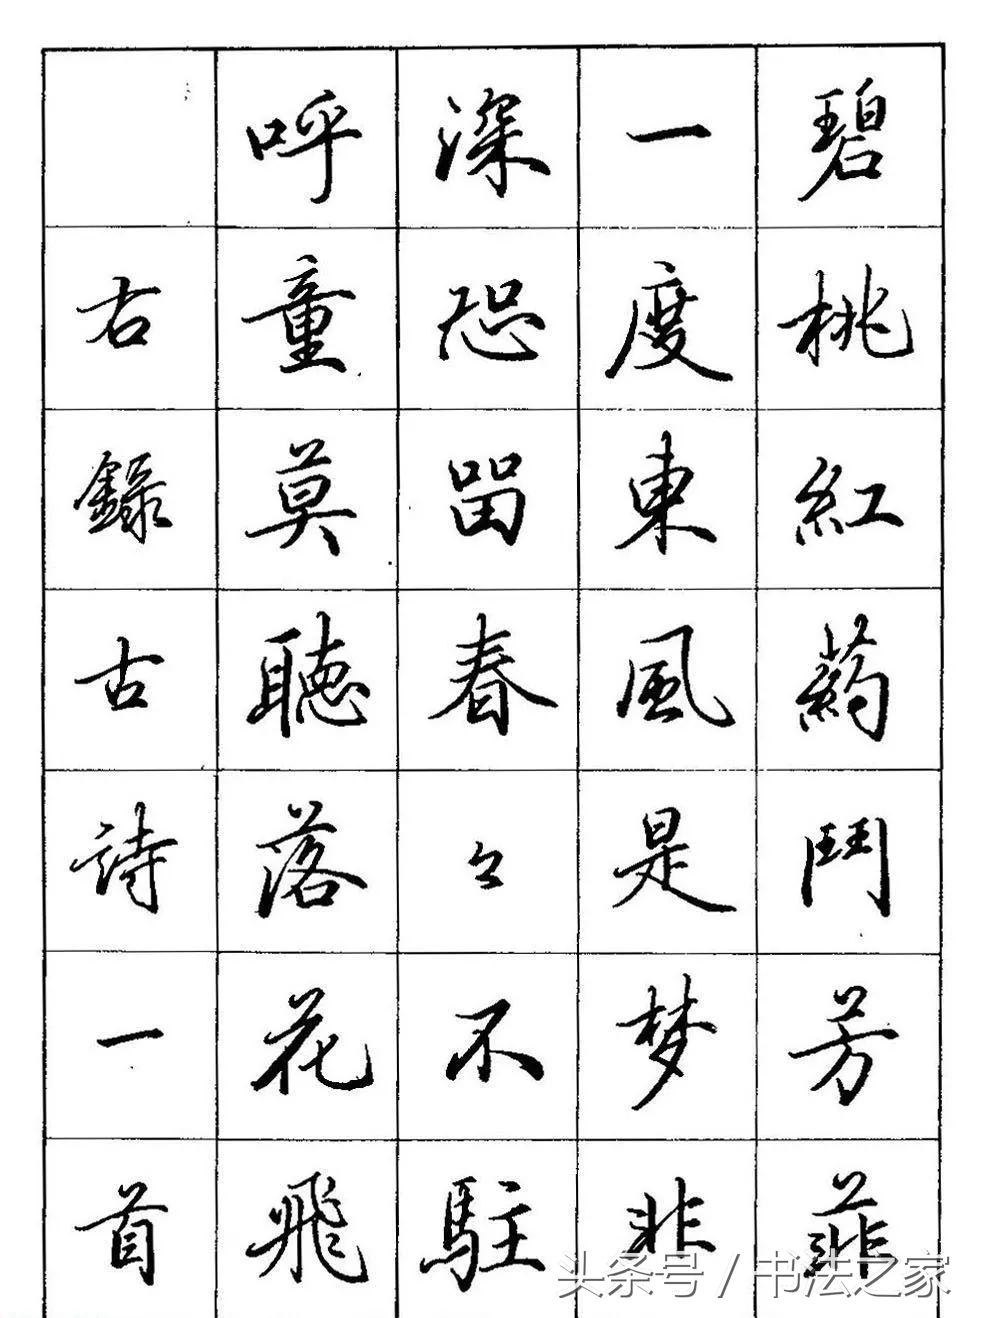 碧桃紅藥鬥芳菲
一度東風是梦非
深恐畱春々不駐
呼童莫聽落花飛
右錄古詩一首
头条号 / 书法之家